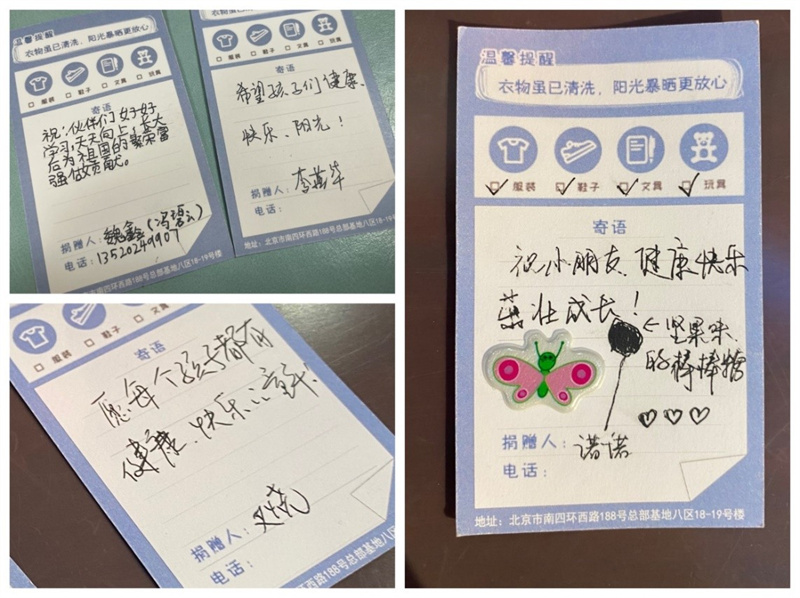 温馨提醒
衣物虽已清洗，阳光暴晒更放心
□ 服装 □ 鞋子 □ 文具 □ 玩具
寄语
祝：伙伴们好好
学习，天天向上！长大
后为祖国的繁荣富
强做贡献。
捐赠人：魏鑫（冯碧云）
电话：13520249907
南四环西路188号总部基地八区18-19号楼
衣物虽已清洗，阳光暴晒更放心
□ 服装 □ 鞋子 □ 文具 □ 玩具
寄语
希望孩子们健康、
快乐、阳光！
捐赠人：李燕华
电话：
地址：北京市南四环西路188号总部基地八区18-19号
□ 服装 □ 鞋子 □ 文具
寄语
愿每个孩子都有
健康、快乐的童年！
捐赠人：
电话：
环西路188号总部基地八
温馨提醒
衣物虽已清洗，阳光暴晒更放心
服装 鞋子 文具 玩具
寄语
祝小朋友、健康快乐
茁壮成长！
←坚果味
的棒棒糖
捐赠人：诺诺
电话：
地址：北京市南四环西路188号总部基地八区18-19号楼